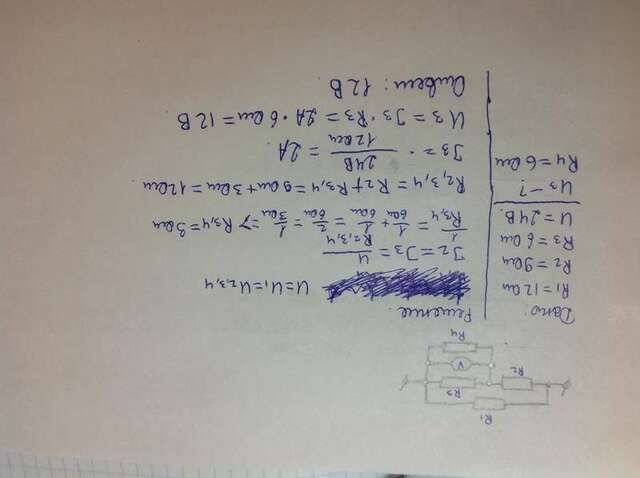 R1
R2
R3
V
R4
Дано:
R1 = 12 Ом
R2 = 9 Ом
R3 = 6 Ом
U = 24 В.
U3 - ?
R4 = 6 Ом
Решение.
U = U1 = U2,3,4
I2 = I3 = U/R2,3,4
1/R3,4 = 1/6Ом + 1/6Ом = 2/6Ом = 1/3Ом => R3,4 = 3 Ом
R2,3,4 = R2 + R3,4 = 9 Ом + 3 Ом = 12 Ом
I3 = 24В/12Ом = 2А
U3 = I3 · R3 = 2А · 6 Ом = 12 В
Ответ: 12 В.